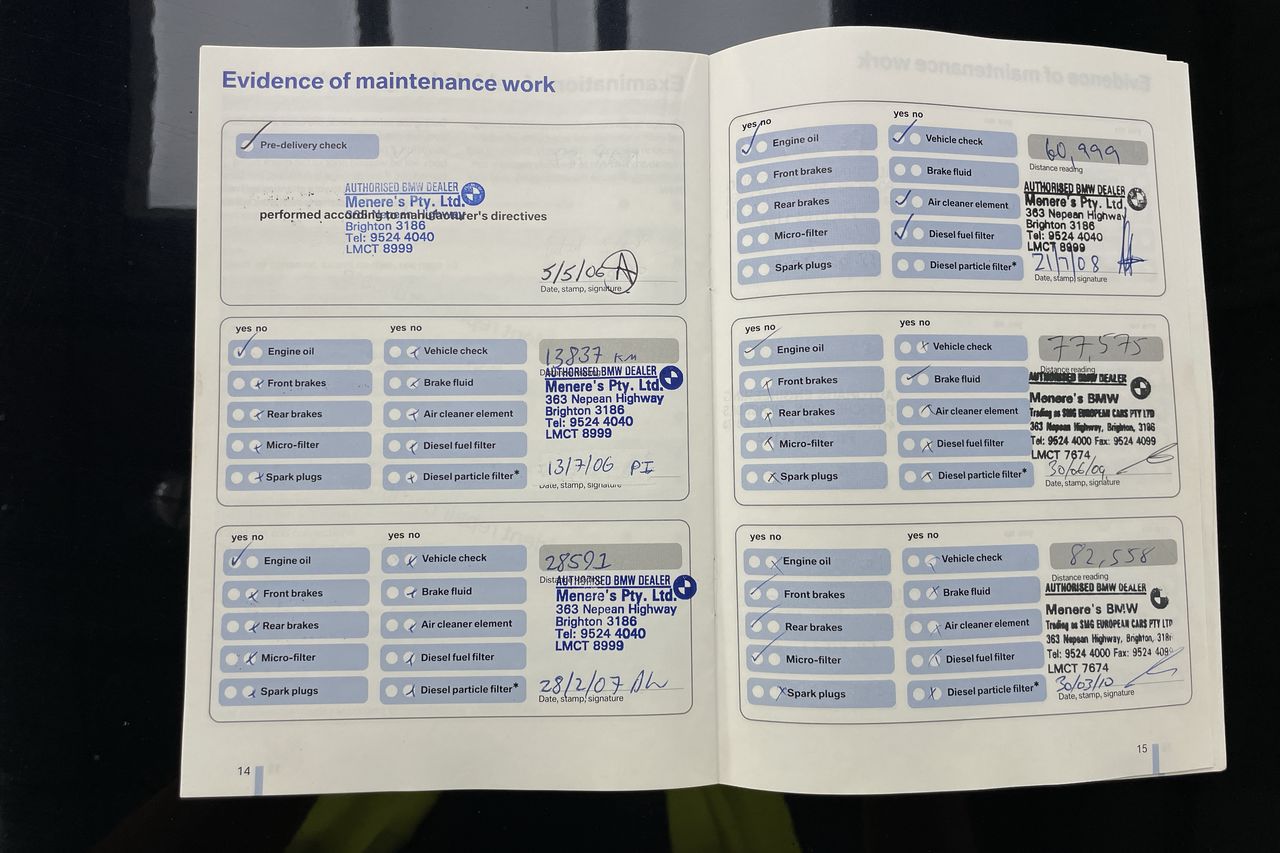 Evidence of maintenance work
Pre-delivery check
AUTHORISED BMW DEALER
Menere's Pty. Ltd.
performed according to manufacturer's directives
363 Nepean Highway
Brighton 3186
Tel: 9524 4040
LMCT 8999
5/5/06 A
Date, stamp, signature
yes no yes no
Engine oil Vehicle check 13837 KM
Front brakes Brake fluid
Rear brakes Air cleaner element
Micro-filter Diesel fuel filter
Spark plugs Diesel particle filter*
AUTHORISED BMW DEALER
Menere's Pty. Ltd.
363 Nepean Highway
Brighton 3186
Tel: 9524 4040
LMCT 8999
13/7/06 PI
Date, stamp, signature
yes no yes no
Engine oil Vehicle check 28591
Front brakes Brake fluid
Rear brakes Air cleaner element
Micro-filter Diesel fuel filter
Spark plugs Diesel particle filter*
AUTHORISED BMW DEALER
Menere's Pty. Ltd.
363 Nepean Highway
Brighton 3186
Tel: 9524 4040
LMCT 8999
28/2/07
Date, stamp, signature
14
yes no yes no
Engine oil Vehicle check 60,999
Front brakes Brake fluid
Rear brakes Air cleaner element
Micro-filter Diesel fuel filter
Spark plugs Diesel particle filter*
Distance reading
AUTHORISED BMW DEALER
Menere's Pty. Ltd.
363 Nepean Highway
Brighton 3186
Tel: 9524 4040
LMCT 8999
21/7/08
Date, stamp, signature
yes no yes no
Engine oil Vehicle check 77,575
Front brakes Brake fluid
Rear brakes Air cleaner element
Micro-filter Diesel fuel filter
Spark plugs Diesel particle filter*
Distance reading
AUTHORISED BMW DEALER
Menere's BMW
Trading as SMG EUROPEAN CARS PTY LTD
363 Nepean Highway, Brighton, 3186
Tel: 9524 4000 Fax: 9524 4099
LMCT 7674
30/06/09
Date, stamp, signature
yes no yes no
Engine oil Vehicle check 82,558
Front brakes Brake fluid
Rear brakes Air cleaner element
Micro-filter Diesel fuel filter
Spark plugs Diesel particle filter*
Distance reading
AUTHORISED BMW DEALER
Menere's BMW
Trading as SMG EUROPEAN CARS PTY LTD
363 Nepean Highway, Brighton, 318
Tel: 9524 4000 Fax: 9524 409
LMCT 7674
30/03/10
Date, stamp, signature
15